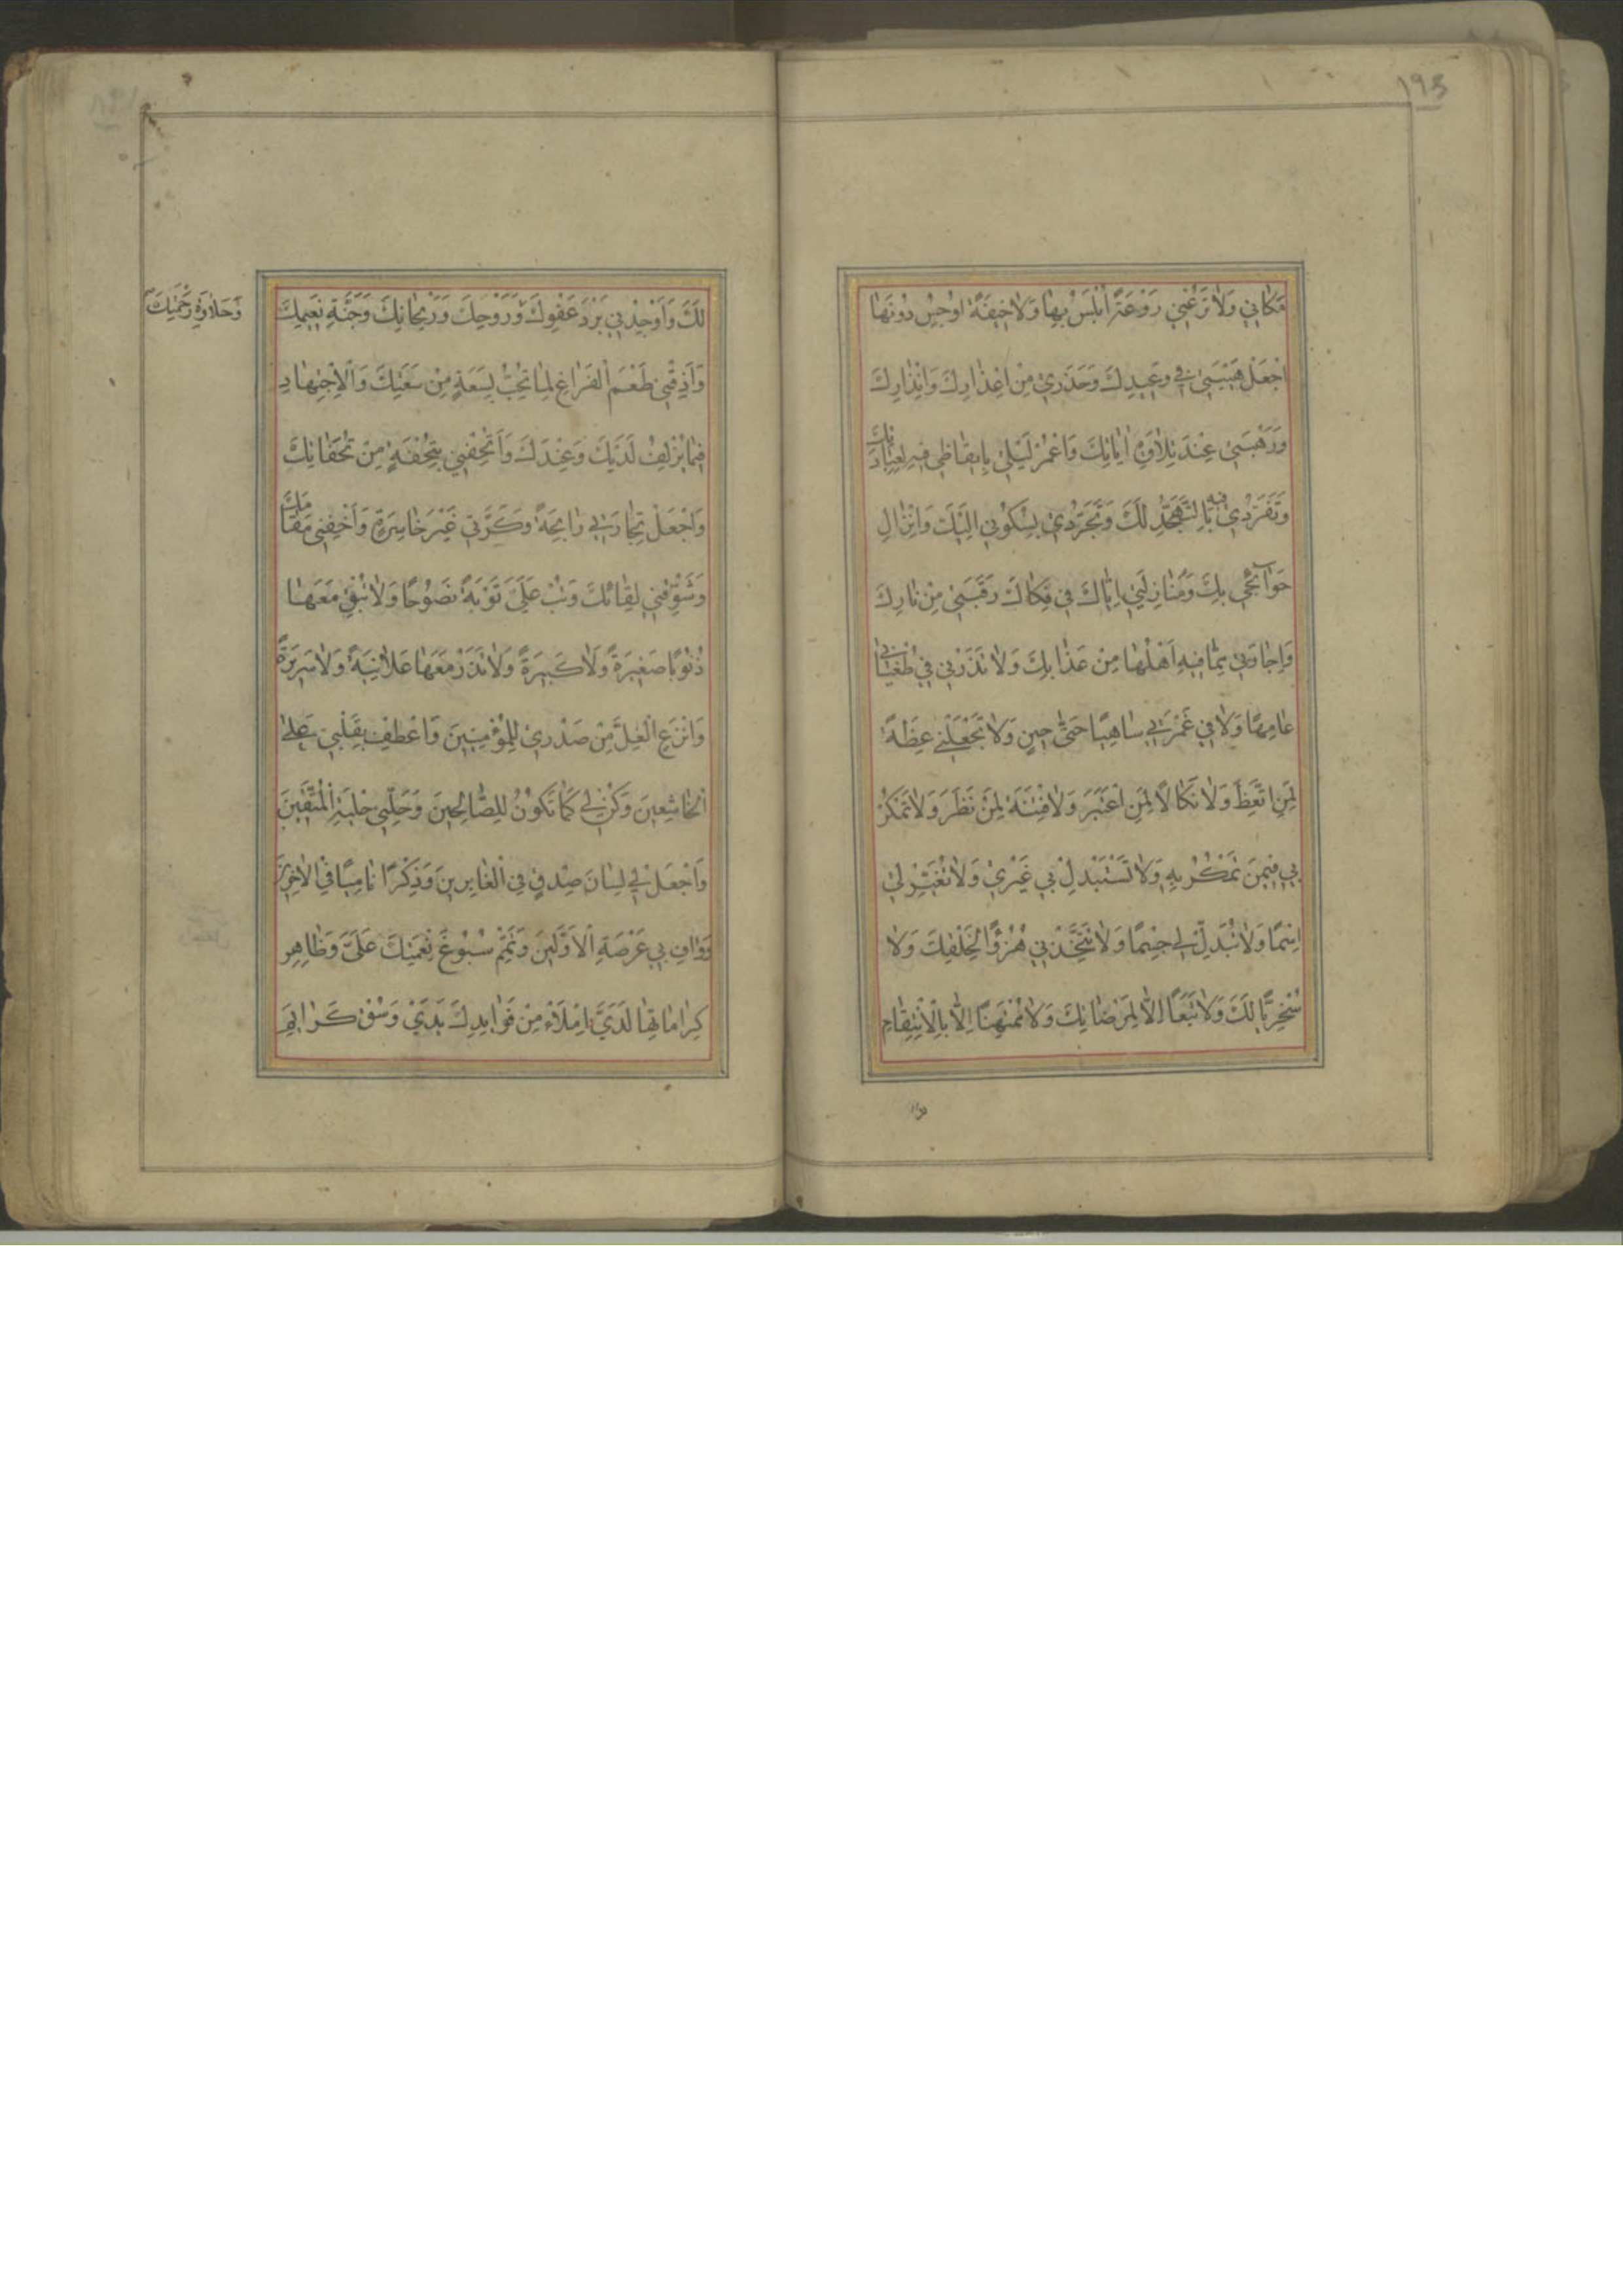 ١٩٤
مَكَانِي وَلَا تَرُعْنِي رَوْعَةً أُبْلِسُ بِهَا وَلَا خِيفَةً أُوجِسُ دُونَهَا
اِجْعَلْ هَيْبَتِي فِي وَعِيدِكَ وَحَذَرِي مِنْ اِعْذَارِكَ وَاِنْذَارِكَ
وَرَهْبَتِي عِنْدَ تِلَاوَةِ اٰيَاتِكَ وَاعْمُرْ لَيْلِي بِاِيقَاظِي فِيهِ لِعِبَادَتِكَ
وَتَفَرُّدِي فِيهِ بِالتَّهَجُّدِ لَكَ وَتَجَرُّدِي بِسُكُونِي اِلَيْكَ وَاِنْزَالِ
حَوَآئِجِي بِكَ وَمُنَازَلَتِي اِيَّاكَ فِي فَكَاكِ رَقَبَتِي مِنْ نَارِكَ
وَاِجَارَتِي مِمَّا فِيهِ اَهْلُهَا مِنْ عَذَابِكَ وَلَا تَذَرْنِي فِي طُغْيَانِي
عَامِهًا وَلَا فِي غَمْرَتِي سَاهِيًا حَتَّى حِينٍ وَلَا تَجْعَلْنِي عِظَةً
لِمَنِ اتَّعَظَ وَلَا نَكَالًا لِمَنِ اعْتَبَرَ وَلَا فِتْنَةً لِمَنْ نَظَرَ وَلَا تَمْكُرْ
بِي فِيمَنْ تَمْكُرُ بِهِ وَلَا تَسْتَبْدِلْ بِي غَيْرِي وَلَا تُغَيِّرْ لِي
اِسْمًا وَلَا تُبَدِّلْ لِي جِسْمًا وَلَا تَتَّخِذْنِي هُزُوًا لِخَلْقِكَ وَلَا
سُخْرِيًّا لَكَ وَلَا تَبَعًا اِلَّا لِمَرْضَاتِكَ وَلَا مُمْتَهَنًا اِلَّا بِالْاِنْتِقَامِ
لَكَ وَاَوْجِدْنِي بَرْدَ عَفْوِكَ وَرَوْحِكَ وَرَيْحَانِكَ وَجَنَّةِ نَعِيمِكَ
وَحَلَاوَةَ رَحْمَتِكَ
وَاَذِقْنِي طَعْمَ الْفَرَاغِ لِمَا تُحِبُّ بِسَعَةٍ مِنْ سَعَتِكَ وَالْاِجْتِهَادِ
فِيمَا يُزْلِفُ لَدَيْكَ وَعِنْدَكَ وَاَتْحِفْنِي بِتُحْفَةٍ مِنْ تُحَفَاتِكَ
وَاجْعَلْ تِجَارَتِي رَابِحَةً وَكَرَّتِي غَيْرَ خَاسِرَةٍ وَاَخِفْنِي مَقَامَكَ
وَشَوِّقْنِي لِقَائَكَ وَتُبْ عَلَيَّ تَوْبَةً نَصُوحًا وَلَا تُبْقِ مَعَهَا
ذُنُوبًا صَغِيرَةً وَلَا كَبِيرَةً وَلَا تَذَرْ مَعَهَا عَلَانِيَةً وَلَا سَرِيرَةً
وَانْزَعِ الْغِلَّ مِنْ صَدْرِي لِلْمُؤْمِنِينَ وَاعْطِفْ بِقَلْبِي عَلَى
الْخَاشِعِينَ وَكُنْ لِي كَمَا تَكُونُ لِلصَّالِحِينَ وَحَلِّنِي حِلْيَةَ الْمُتَّقِينَ
وَاجْعَلْ لِي لِسَانَ صِدْقٍ فِي الْغَابِرِينَ وَذِكْرًا نَامِيًا فِي الْاٰخِرِينَ
وَوَافِ بِي عَرْصَةَ الْاَوَّلِينَ وَتَمِّمْ سُبُوغَ نِعْمَتِكَ عَلَيَّ وَظَاهِرْ
كَرَامَاتِهَا لَدَيَّ اِمْلَأْ مِنْ فَوَايِدِكَ يَدَيَّ وَسُقْ كَرَايِمَ